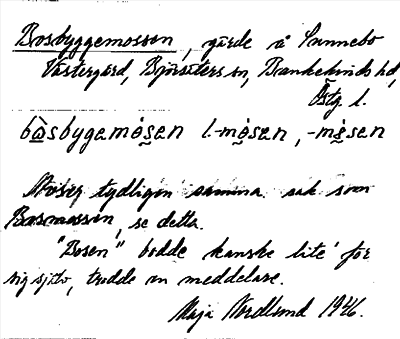 Bosbyggemossen, gärde å Sunnebo
Västergård, Bjärsäters sn, Bankekinds hd,
Östg. l.
båsbygemósen l. -mósen, -mósen
tydligen samma sak som
Bosmossen, se detta.
"Bosen" bodde kanske lite' för
sig sjelv, trodde en meddelare.
Maja Nordlund 1946.